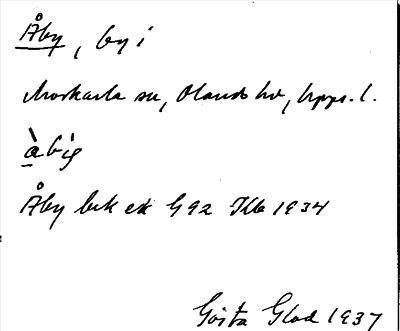 Åby, by i
Morkarla sn, Olands hd, Upps. l.
àbìg
Åby bek ek G 92 Kb 1934
Gösta Glad 1937